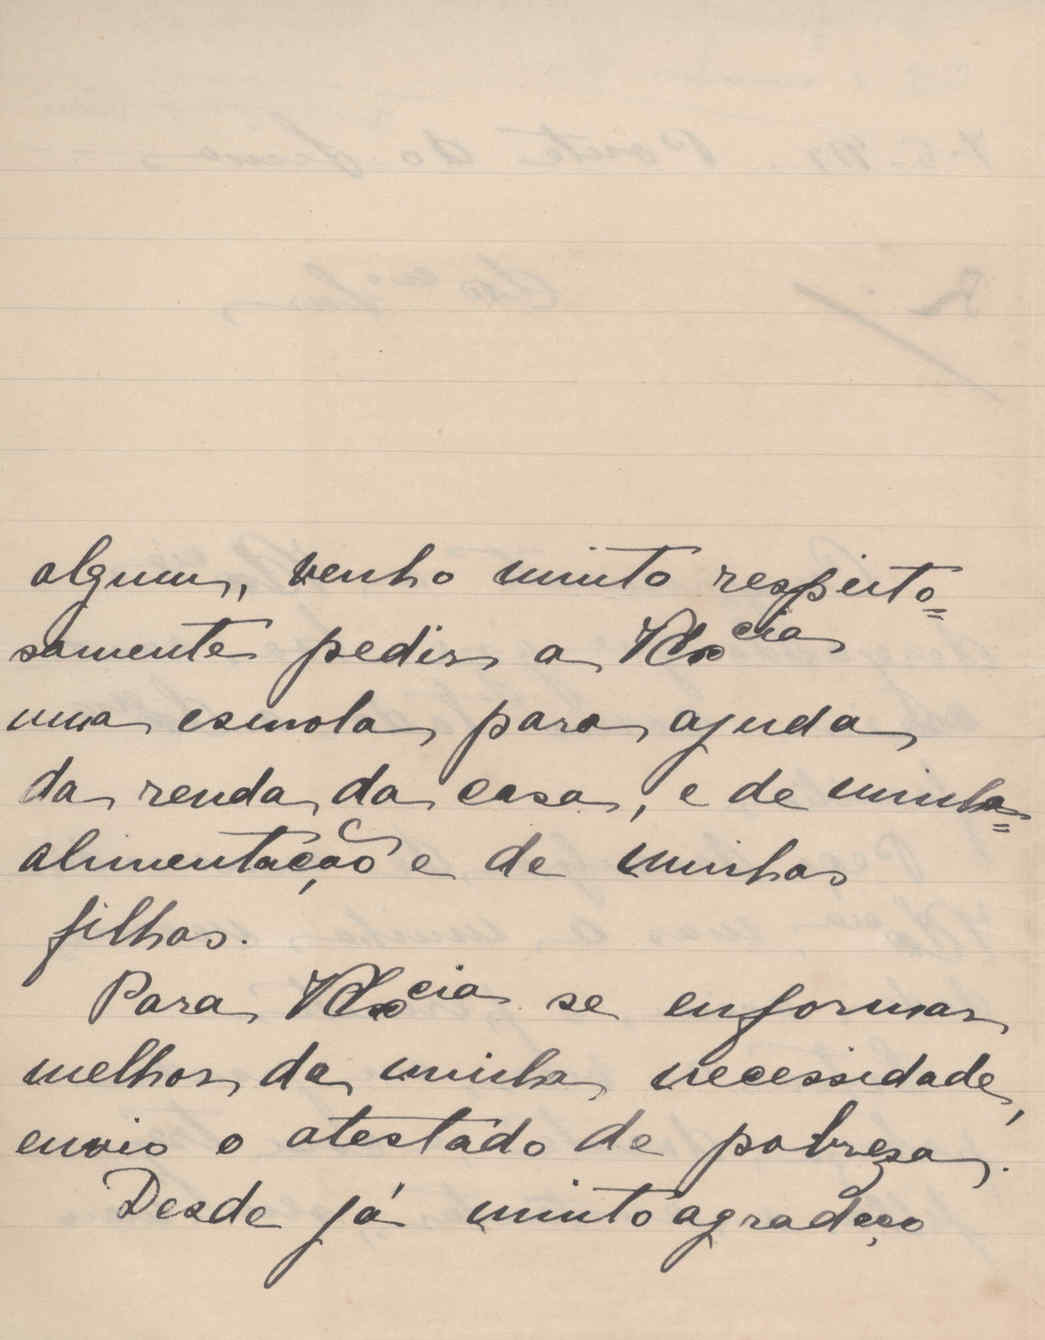 algum, venho muito respeito=
samente pedir a V Ex.cia
uma esmola para ajuda
da renda da casa, e de minha=
alimentação e de minhas
filhas.
Para V Ex.cia se enformar
melhor da minha necessidade,
envio o atestado de pobresa.
Desde já muito agradeço